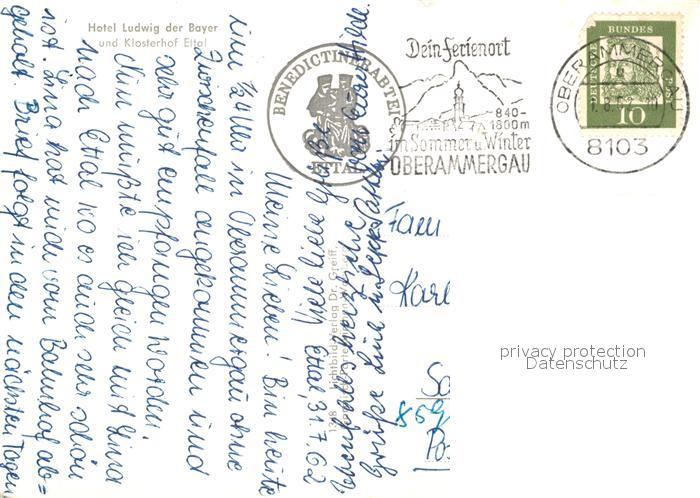 Hotel Ludwig der Bayer
und Klosterhof Ettal
BENEDICTINERABTEI
ETTAL
Dein Ferienort
840-
1800m
im Sommer u. Winter
OBERAMMERGAU
OBERAMMERGAU
8103
DEUTSCHE BUNDESPOST
10
Ettal, 31.7.62
Meine Lieben! Bin heute
um 1/2 4 Uhr in Oberammergau ohne
Zwischenfall angekommen und
sehr gut empfangen worden.
Nun mußte ich gleich mit Lina
nach Ettal wo es auch sehr schön
ist. Lina hat mich vom Bahnhof ab=
geholt. Brief folgt in den nächsten Tagen
Viele liebe
herzliche
Grüße Lina
Fam
Karl
859
privacy protection
Datenschutz